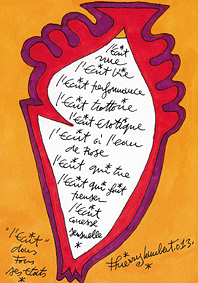 l'Écrit
nue
l'Écrit Vie
l'Écrit performance
l'Écrit trottoir
l'Écrit érotique
l'Écrit à l'eau
de rose
l'Écrit qui tue
l'Écrit qui fait
penser
l'Écrit
caresse
sensuelle
"l'Écrit"
dans
tous
ses états
thierry lambert.013.